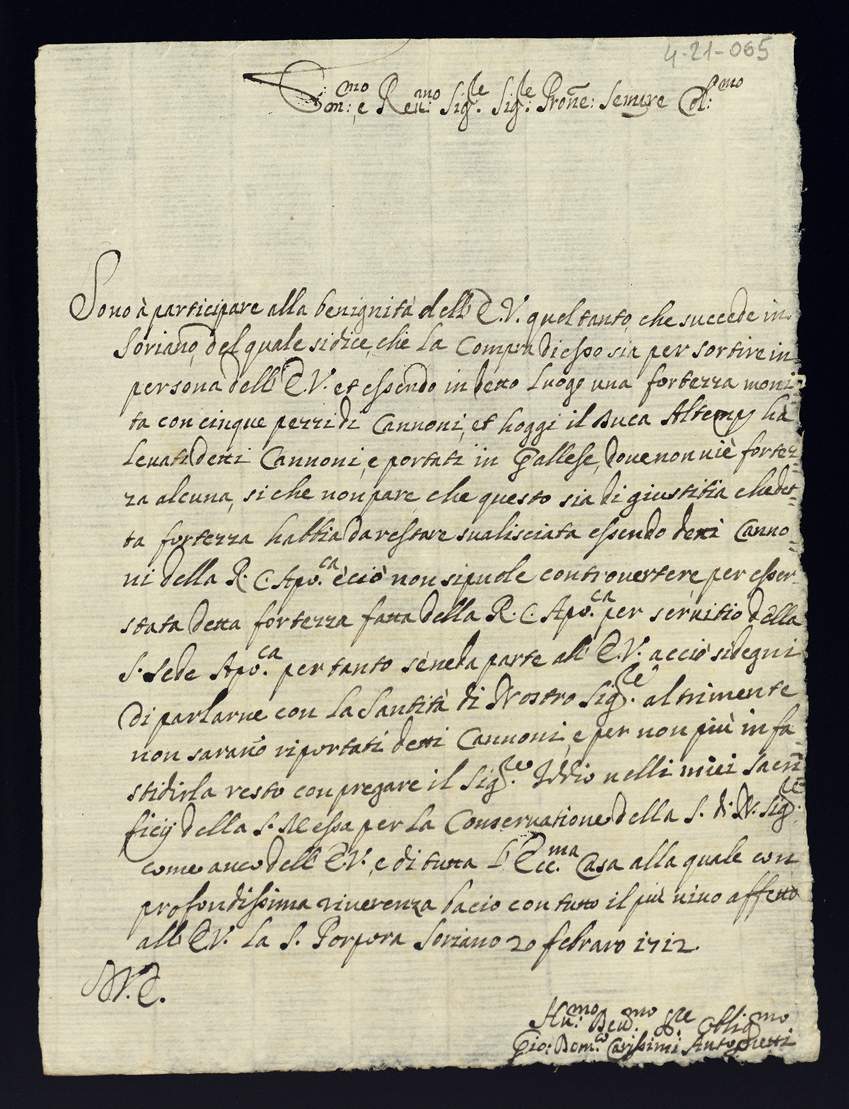 4-21-065
Em:mo e Reu:mo Sig:re Sig:re Prone: Sempre Col:mo
Sono à participare alla benignità dell'E.V. quel tanto, che succede in
Soriano, del quale si dice, che la Compra di esso sia per sortire in
persona dell'E.V. et essendo in detto luogo una fortezza moni-
ta con cinque pezzi di Cannoni, et hoggi il Duca Altemps hà
leuati detti Cannoni, e portati in Gallese, doue non uiè fortez-
za alcuna, si che non pare, che questo sia di giustitia che det-
ta fortezza habbia da restare sualisciata essendo detti Canno-
ni della R. C. Apo:ca e ciò non si puole controuertere per esser
stata detta fortezza fatta della R. C. Apo:ca per seruitio della
S. Sede Apo:ca per tanto sene da parte all'E.V. acciò si degni
di parlarne con la Santità di Nostro Sig:re altrimente
non sarano riportati detti Cannoni, e per non più infa
stidirla resto con pregare il Sig:re Iddio nelli miei Sacri
ficij della S. Messa per la Conseruatione della S. di N. Sig:re
come anco dell'E.V., e di tutta l'Ecc:ma Casa alla quale con
profondissima riuerenza bacio con tutto il più uiuo affetto
all'E.V. la S. Porpora Soriano 20 febraro 1712
D.V.E.
Hu:mo Deu:mo Sre Oblig:mo
Gio: Dom:co Carissimi Antonetti